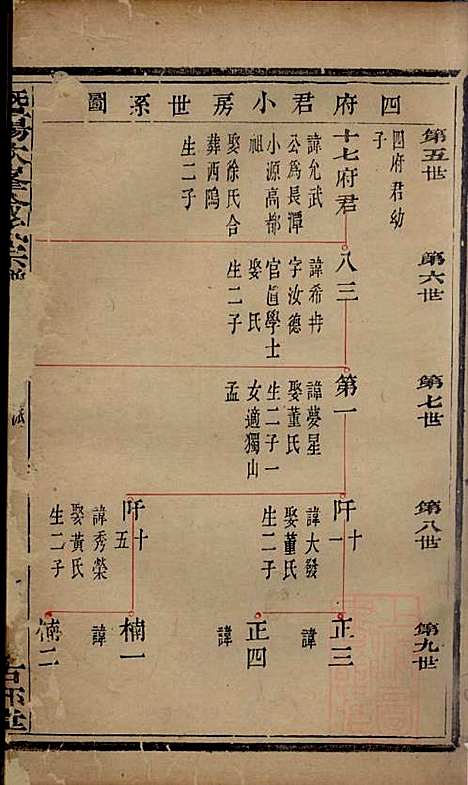 四府君小房世系圖
第五世
四府君幼
子
十七府君
諱允武
公爲長潭
小源高都
祖
娶徐氏合
葬西隖
生二子
第六世
八三
諱希冉
字汝德
官眞學士
娶 氏
生二子
第七世
第一
諱夢星
娶董氏
生二子一
女適獨山
孟
第八世
阡十一
諱大發
娶董氏
生二子
阡十五
諱秀榮
娶黃氏
生二子
第九世
正三
諱
正四
諱
楠一
諱
楠二